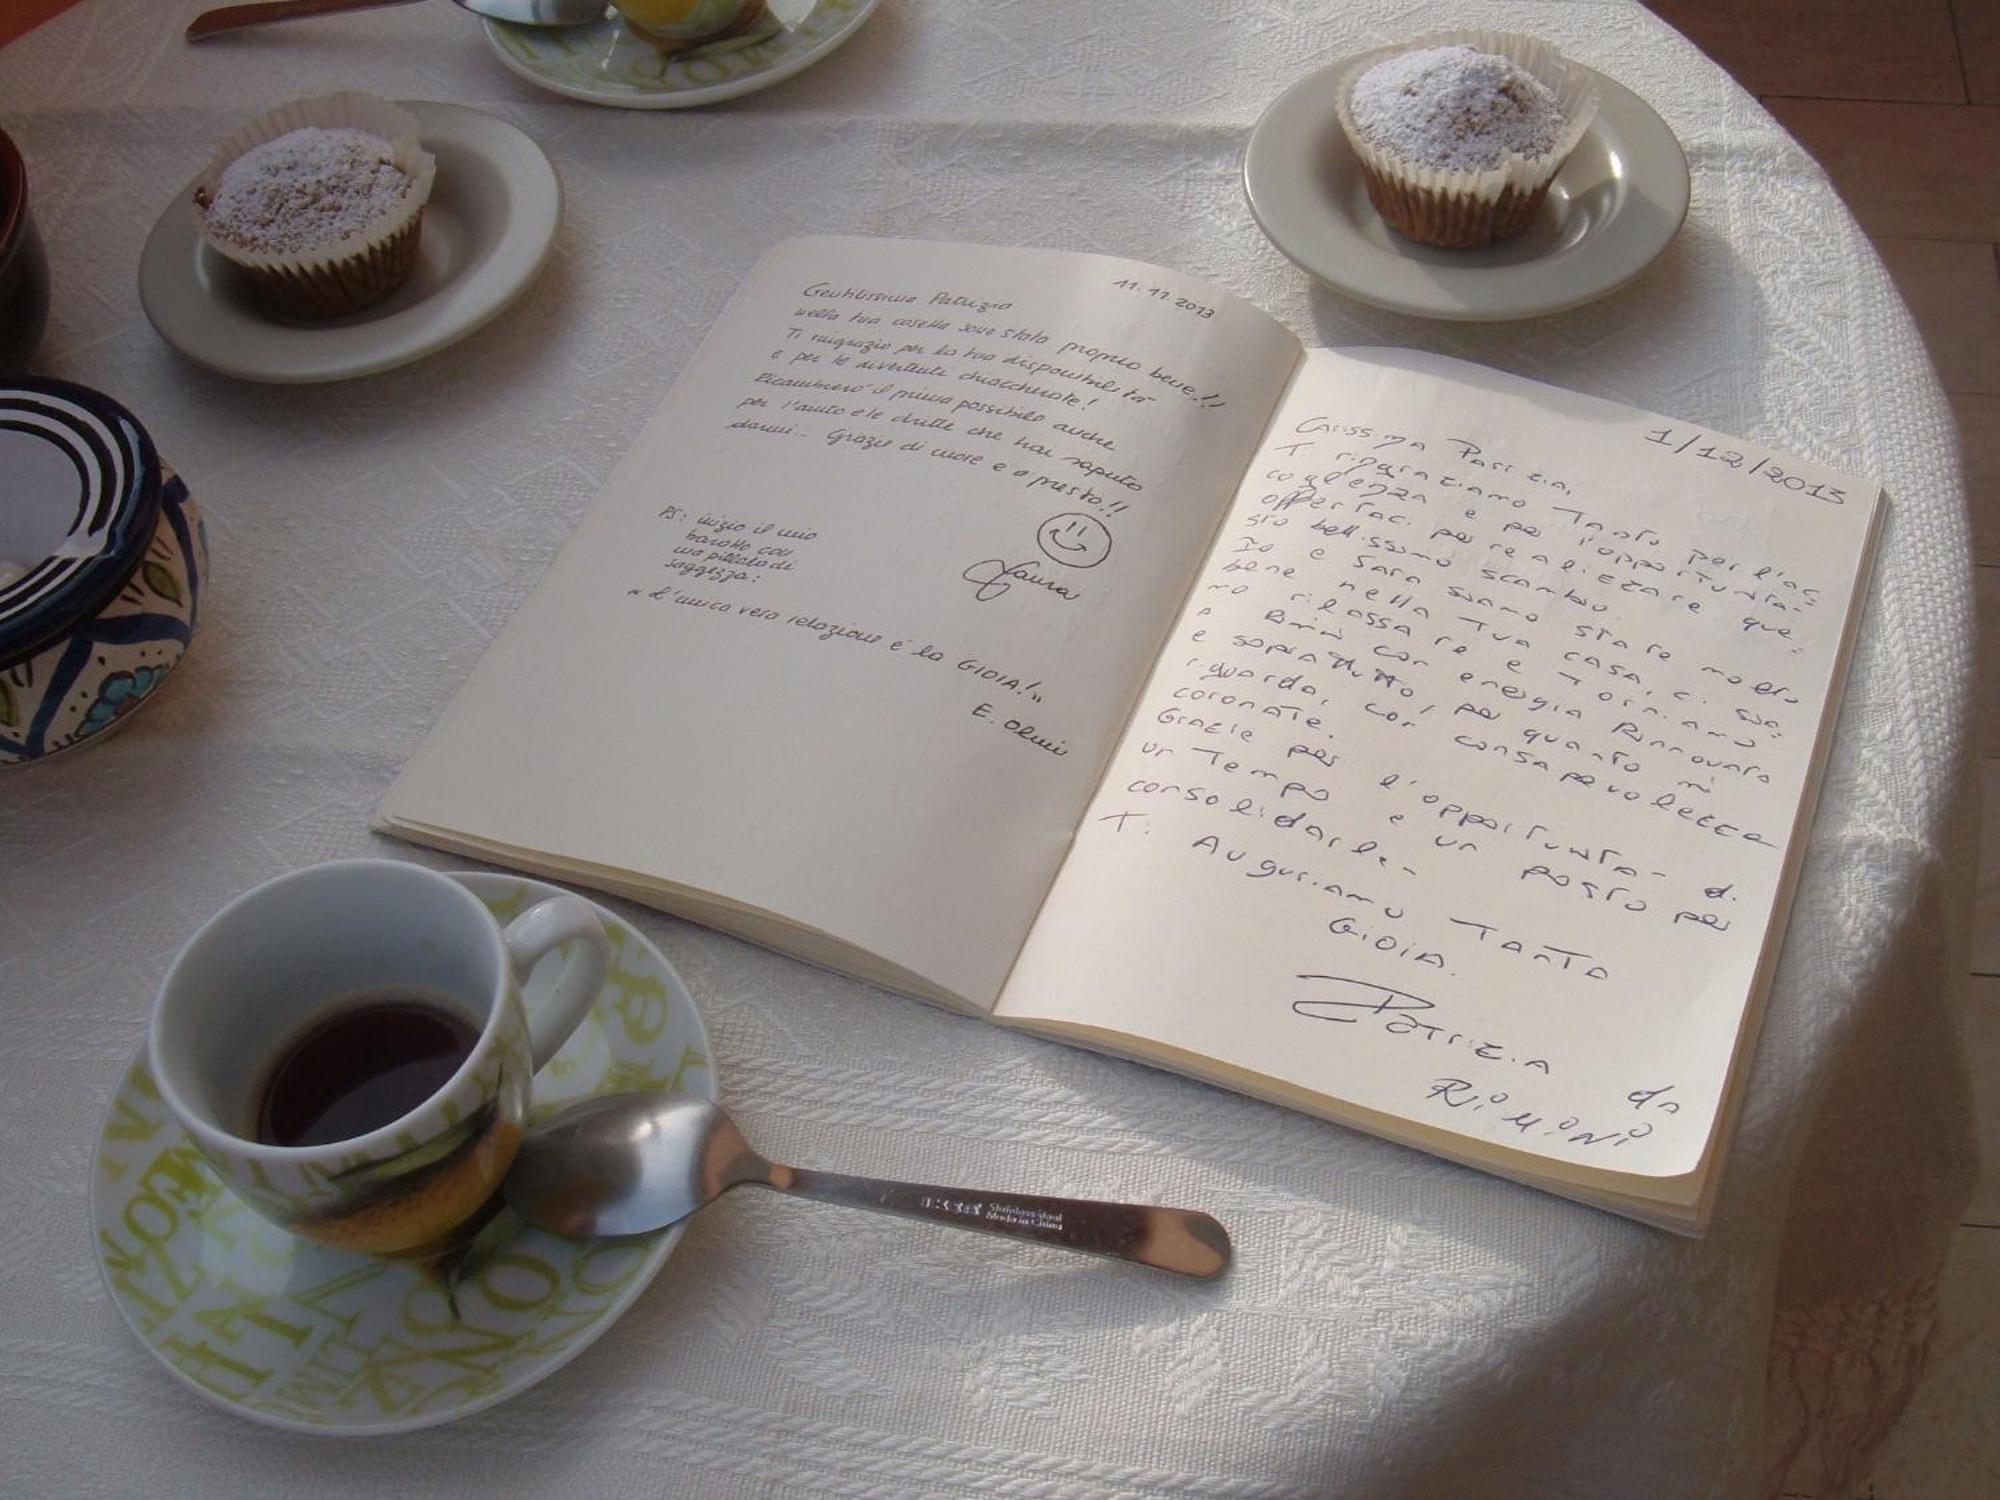 11.11.2013
Gentilissima Patrizia
nella tua casetta sono stata proprio bene!!
Ti ringrazio per la tua disponibilità
e per le divertenti chiacchierate!
Ricambierò il prima possibile anche
per l'aiuto e le dritte che hai saputo
darmi... Grazie di cuore e a presto!!
Laura
PS: inizio il mio
baratto con
una pillola di
saggezza:
"L'unica vera relazione é la GIOIA!"
E. Olmi
1/12/2013
Carissima Patrizia,
Ti ringraziamo Tanto per l'ac=
coglienza e per l'opportunita=
offertaci per realizzare que=
sto bellissimo scambio.
Io e Sara siamo state molto
bene nella Tua casa, ci sia=
mo rilassate e Torniamo
a Rimini con energia Rinnovata
e sopratutto, per quanto mi
riguarda, con consapevolezza
coronate.
Grazie per l'opportunita- di
un Tempo e un posto per
consolidarle-
Ti Auguriamo Tanta
GIOIA.
Patrizia da
RiMiNi
Stainless Steel
Made in China